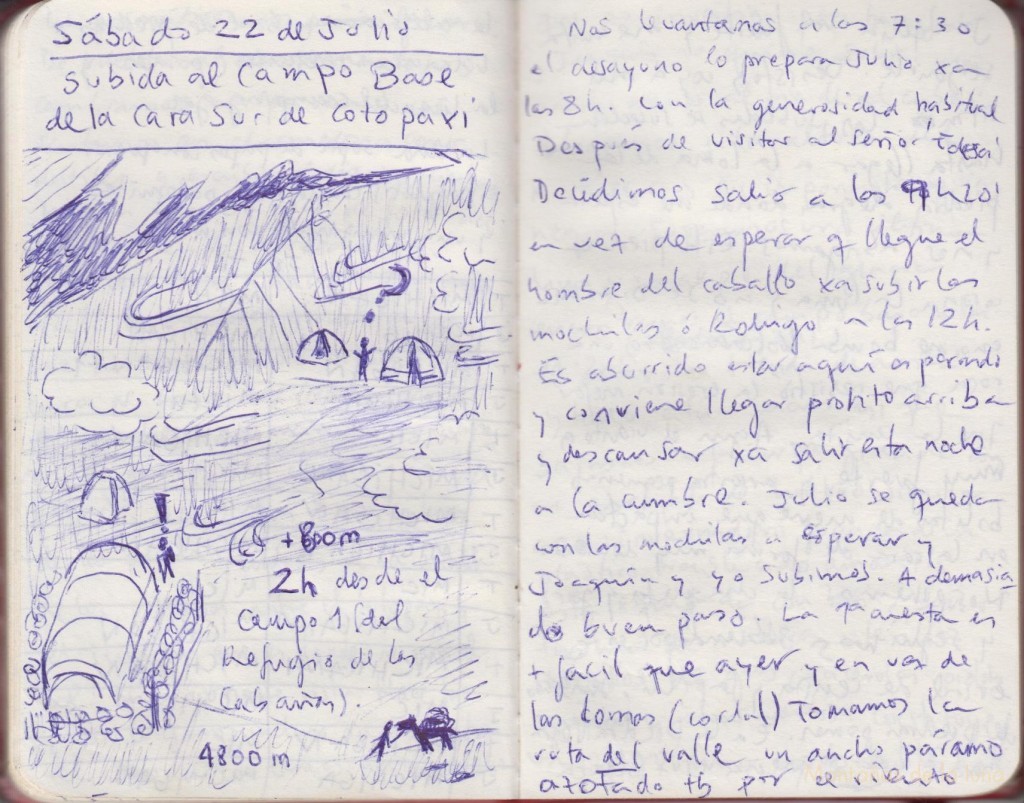 Sábado 22 de Julio
subida al Campo Base
de la Cara Sur de Cotopaxi
+800m
2h desde el
Campo 1 (del
Refugio de las
Cabañas).
4800 m
Nos levantamos a las 7:30
el desayuno lo prepara Julio xa
las 8h. con la generosidad habitual
Después de visitar al señor
Decidimos salir a las h20'
en vez de esperar q llegue el
hombre del caballo xa subir las
mochilas ó Rodrigo a las 12h.
Es aburrido estar aquí esperando
y conviene llegar prontito arriba
y descansar xa salir esta noche
a la cumbre. Julio se queda
con las mochilas a esperar y
Joaquín y yo subimos. A demasia
do buen paso. La 1ª cuesta es
+ facil que ayer y en vez de
las lomas (cordal) Tomamos la
ruta del valle un ancho páramo
azotado tb por el viento